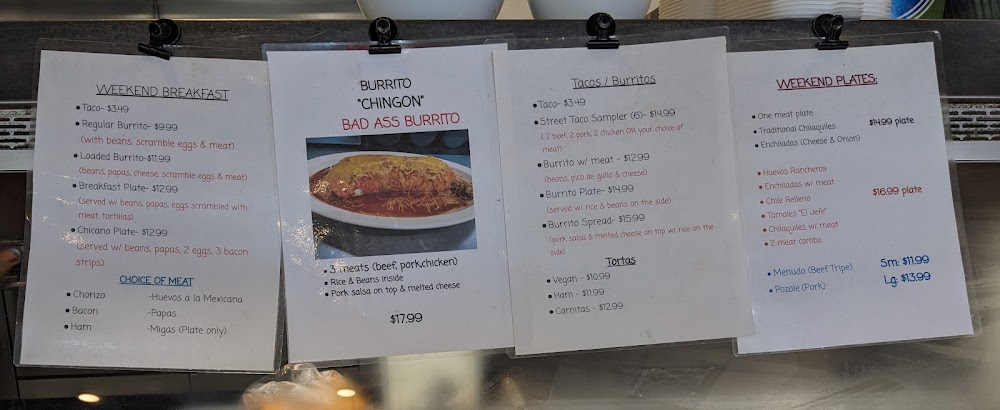 WEEKEND BREAKFAST
• Taco- $3.49
• Regular Burrito- $9.99
(with beans, scramble eggs & meat)
• Loaded Burrito-$11.99
(beans, papas, cheese, scramble eggs & meat)
• Breakfast Plate- $12.99
(served w/ beans, papas, eggs scrambled with
meat, tortillas)
• Chicano Plate- $12.99
(Served w/ beans, papas, 2 eggs, 3 bacon
strips)
CHOICE OF MEAT
• Chorizo -Huevos a la Mexicana
• Bacon -Papas
• Ham -Migas (Plate only)
BURRITO
"CHINGON"
BAD ASS BURRITO
• 3 meats (beef, pork,chicken)
• Rice & Beans inside
• Pork salsa on top & melted cheese
$17.99
Tacos / Burritos
• Taco- $3.49
• Street Taco Sampler (6)- $14.99
( 2 beef, 2 pork, 2 chicken OR your choice of
meat)
• Burrito w/ meat - $12.99
(beans, pico de gallo & cheese)
• Burrito Plate- $14.99
(served w/ rice & beans on the side)
• Burrito Spread- $15.99
(pork salsa & melted cheese on top w/ rice on the
side)
Tortas
• Vegan - $10.99
• Ham - $11.99
• Carnitas - $12.99
WEEKEND PLATES:
• One meat plate
• Traditional Chilaquiles $14.99 plate
• Enchiladas (Cheese & Onion)
• Huevos Rancheros
• Enchiladas w/ meat
• Chile Relleno $16.99 plate
• Tamales "El Jefe"
• Chilaquiles w/ meat
• 2 meat combo
• Menudo (Beef Tripe) Sm: $11.99
• Pozole (Pork) Lg: $13.99